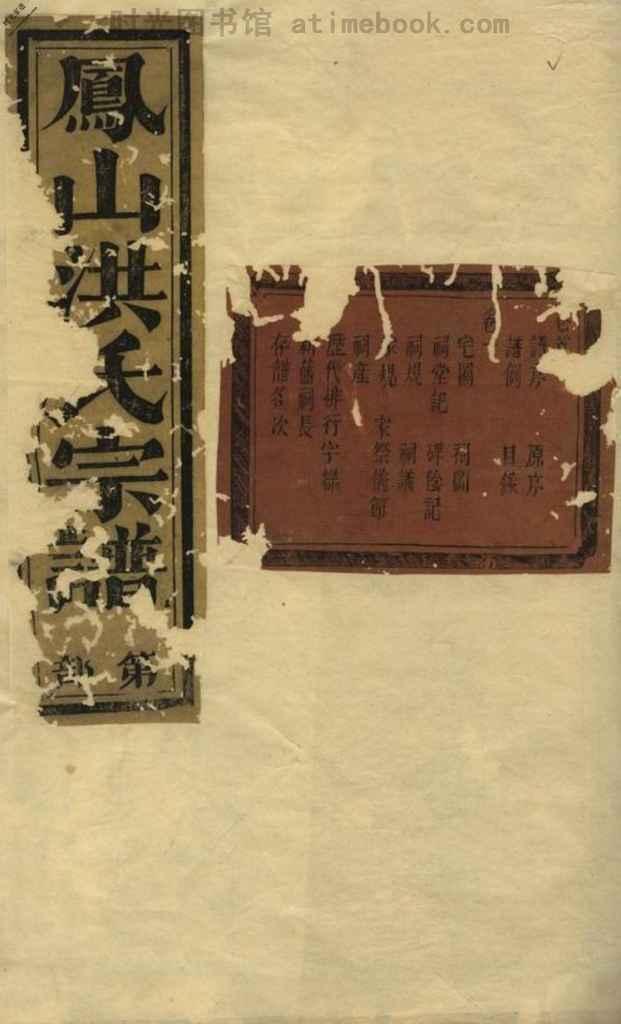 时光图书馆 atimebook.com
鳳山洪氏宗譜
第
譜序 原序
譜例 目錄
卷
宅圖 祠圖
祠堂記 碑陰記
祠規 祠議
規 家祭儀節
祠産
歷代排行字樣
舊祠長
存譜名次